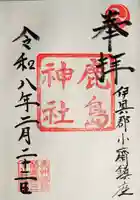 奉拝
伊具郡小斎鎮座
鹿島
神社
令和八年二月二十二日